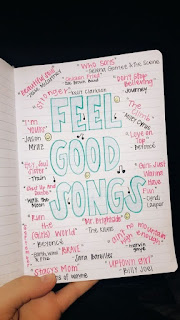 "Beautiful Soul"
Jesse McCartney
"Who Says"
-Selena Gomez & the Scene
"Stronger"
Kelly Clarkson
"Don't Stop
Believing"
-Journey
FEEL
GOOD
SONGS
"I'm
Yours"
-Jason
Mraz
"The
Climb"
-Miley Cyrus
"Love on
Top"
-Beyoncé
"Hey, Soul
Sister"
-Train
"Shut Up and
Dance"
-Walk the Moon
"Girls Just
Wanna
Have
Fun"
-Cyndi
Lauper
"Run
the
(Girls) World"
-Beyoncé
"Mr. Brightside"
-The Killers
"Ain't no mountain
high enough"
-Marvin
gaye
Earth, wind
& fire
"BRAVE"
-Sara Bareilles
"Stacy's Mom"
of Wayne
"UPTOWN GIRL"
-Billy Joel